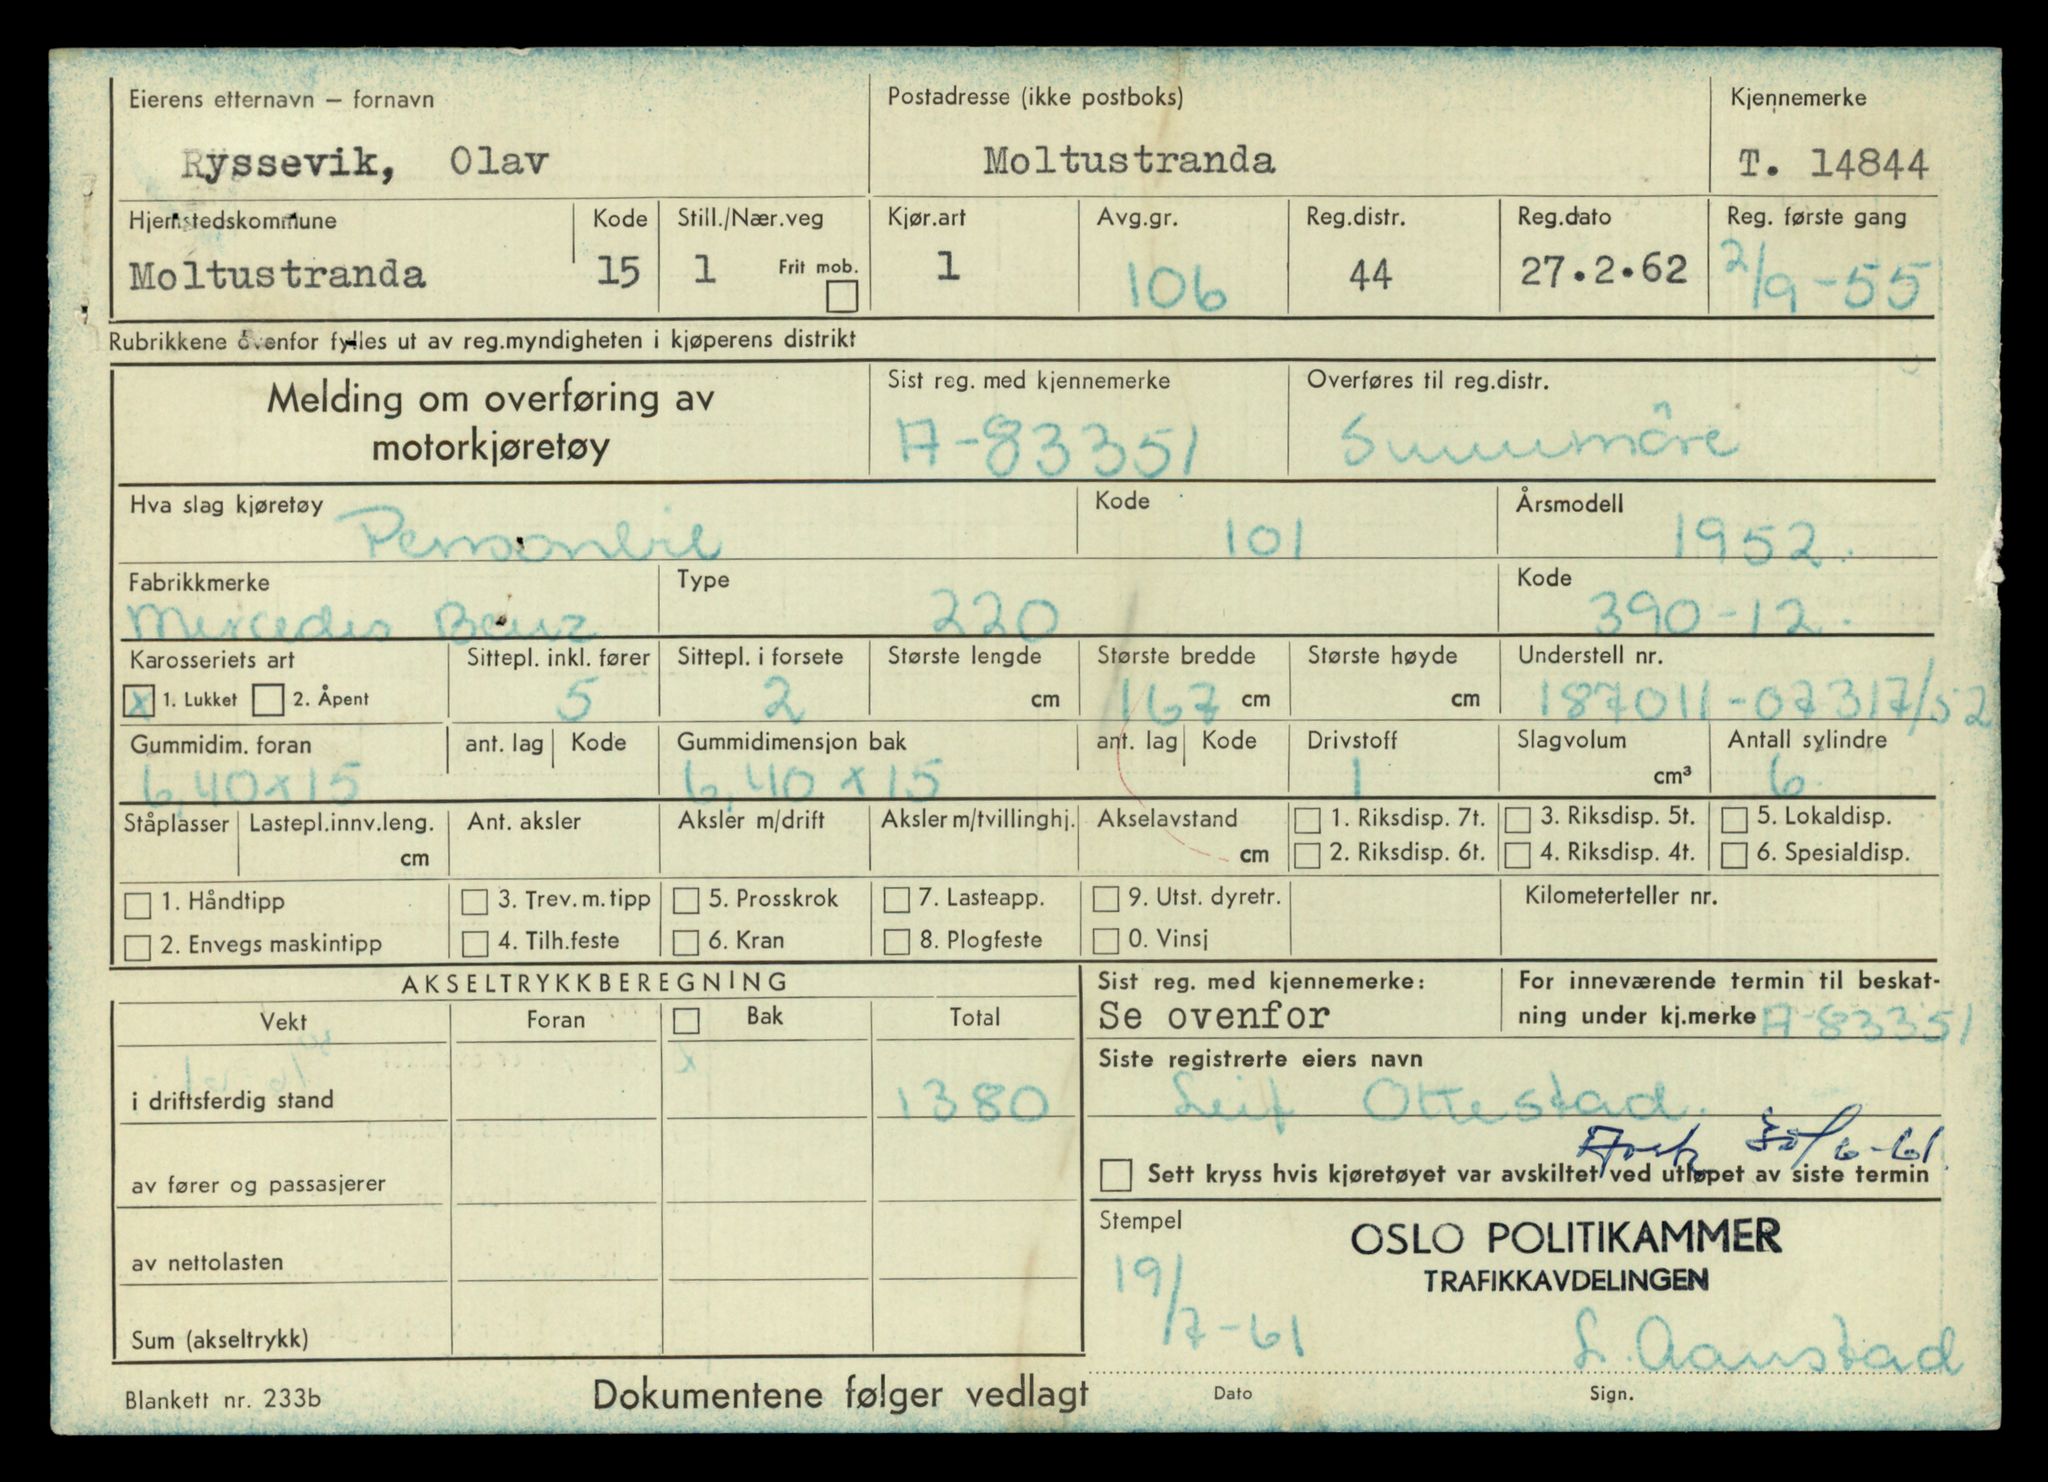 Eierens etternavn – fornavn Postadresse (ikke postboks) Kjennemerke
Ryssevik, Olav Moltustranda T. 14844
Hjemstedskommune Kode Still./Nær.veg Kjør.art Avg.gr. Reg.distr. Reg.dato Reg. første gang
Moltustranda 15 1 Frit mob. 1 106 44 27.2.62 2/9-55
Rubrikkene ovenfor fylles ut av reg.myndigheten i kjøperens distrikt
Melding om overføring av
motorkjøretøy
Sist reg. med kjennemerke Overføres til reg.distr.
A-83351 Sunnmöre
Hva slag kjøretøy Kode Årsmodell
Personbil 101 1952.
Fabrikkmerke Type Kode
Mercedes Benz 220 390-12.
Karosseriets art Sittepl. inkl. fører Sittepl. i forsete Største lengde Største bredde Største høyde Understell nr.
x 1. Lukket 2. Åpent 5 2 cm 167 cm cm 187011-07317/52
Gummidim. foran ant. lag Kode Gummidimensjon bak ant. lag Kode Drivstoff Slagvolum Antall sylindre
6,40x15 6,40 x 15 1 cm³ 6
Ståplasser Lastepl.innv.leng. Ant. aksler Aksler m/drift Aksler m/tvillinghj. Akselavstand 1. Riksdisp. 7t. 3. Riksdisp. 5t. 5. Lokaldisp.
cm cm 2. Riksdisp. 6t. 4. Riksdisp. 4t. 6. Spesialdisp.
1. Håndtipp 3. Trev. m. tipp 5. Prosskrok 7. Lasteapp. 9. Utst. dyretr. Kilometerteller nr.
2. Envegs maskintipp 4. Tilh.feste 6. Kran 8. Plogfeste 0. Vinsj
AKSELTRYKKBEREGNING
Vekt Foran Bak Total
x
i driftsferdig stand 1380
av fører og passasjerer
av nettolasten
Sum (akseltrykk)
Sist reg. med kjennemerke: For inneværende termin til beskat-
Se ovenfor ning under kj.merke A-83351
Siste registrerte eiers navn
Leif Ottestad.
30/6-61.
Sett kryss hvis kjøretøyet var avskiltet ved utløpet av siste termin
Stempel
OSLO POLITIKAMMER
TRAFIKKAVDELINGEN
19/7-61 L. Aanstad
Dato Sign.
Blankett nr. 233b Dokumentene følger vedlagt